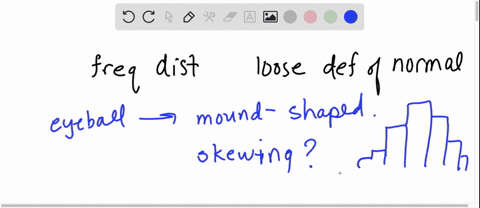 freq dist loose def of normal
eyeball → mound-shaped.
skewing?